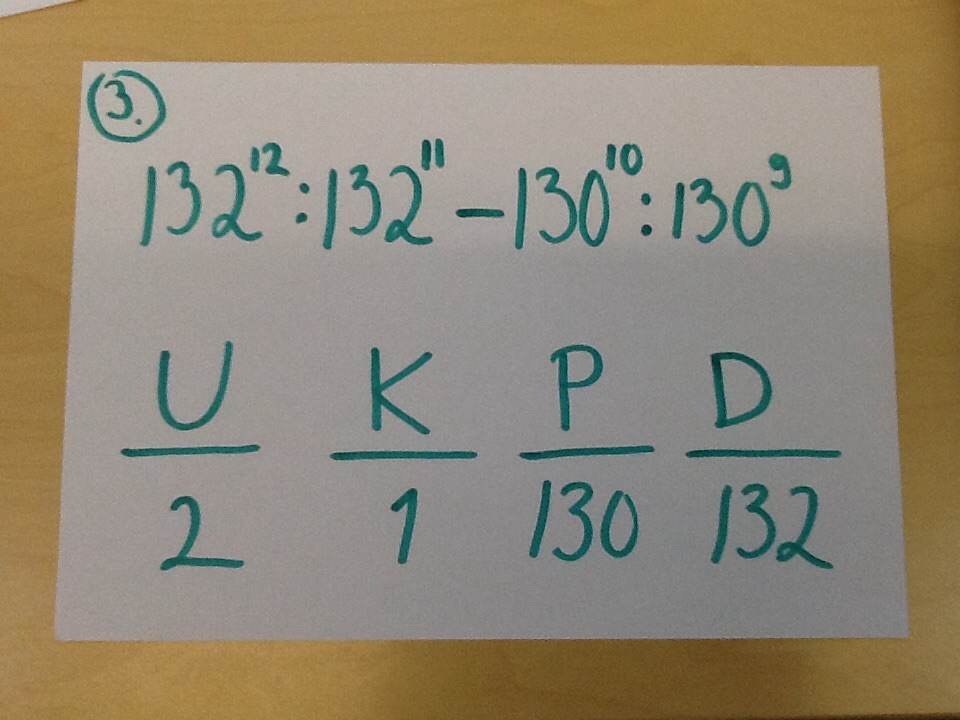 3.
132¹²:132¹¹–130¹⁰:130⁹
U K P D
2 1 130 132